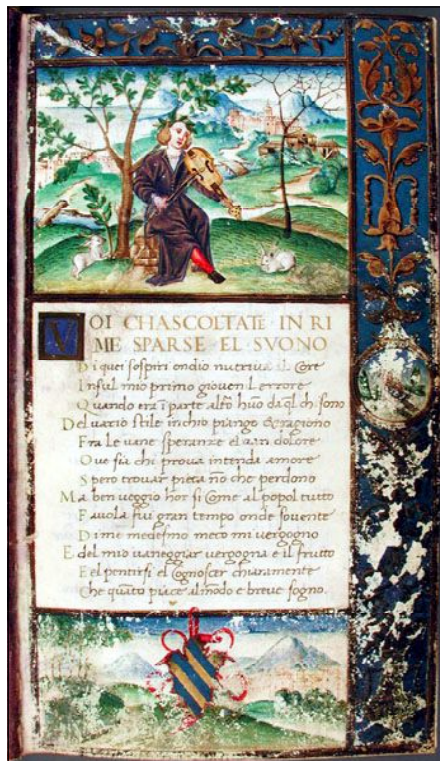 VOI CHASCOLTATE IN RI
ME SPARSE EL SVONO
Di quei sospiri ondio nutriua il Core
Insul mio primo giouenil errore
Quando era ī parte altrō huō da q̄l ch̄ sono
Del uario stile inchio piango & ragiono
Fra le uane speranze el uan dolore
Oue sia chi proua intenda amore
Spero trouar pieta nō che perdono
Ma ben veggio hor si Come al popol tutto
Fauola fui gran tempo onde souente
Di me medesmo meco mi vergogno
E del mio uaneggiar vergogna e il frutto
E el pentirsi el Cognoscer chiaramente
Che quāto piace al mōdo e breue sogno.